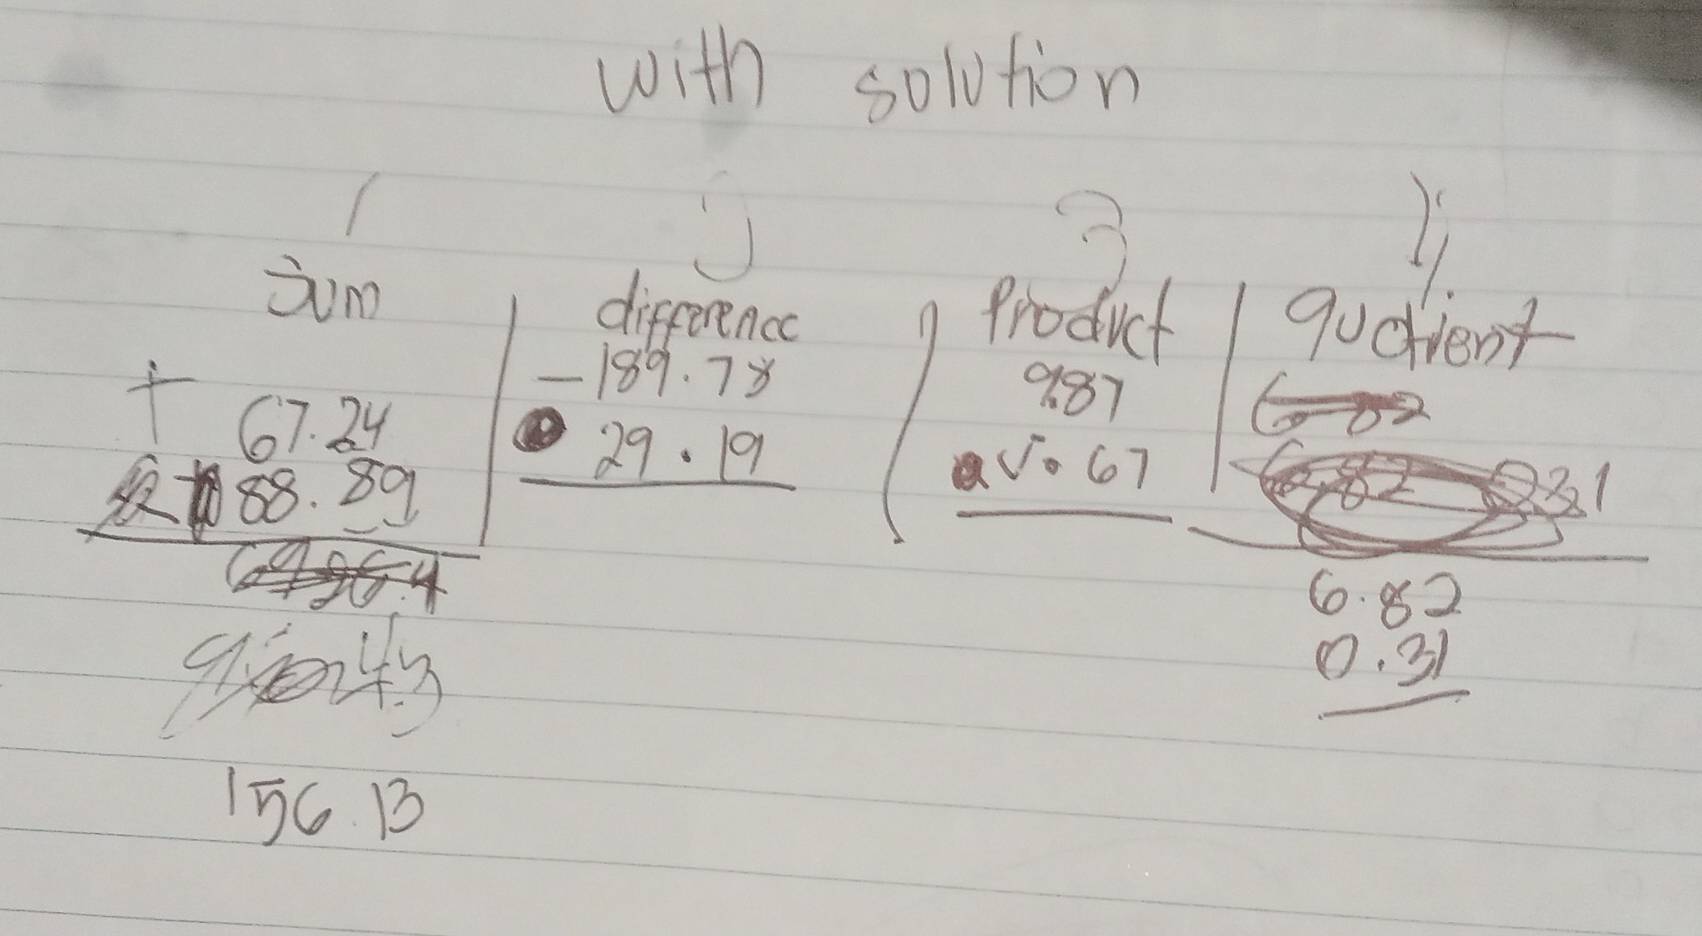 with solution
1
2
3
4
Sum
difference
Product
quotient
+
67.24
88.89
156.13
-189.78
29.19
9.87
5.67
6.82
0.31